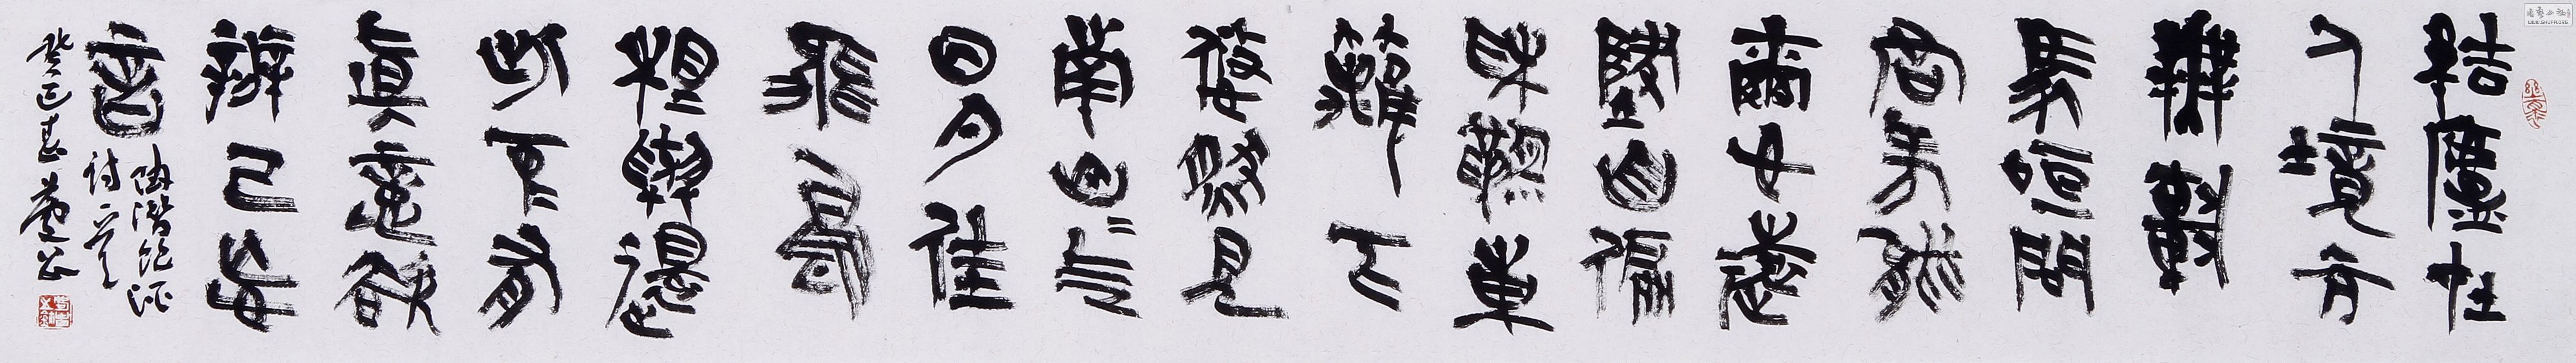 結廬在
人境而
無車
馬喧問
君何能
爾心遠
地自偏
采菊東
籬下
悠然見
南山〻氣
日夕佳
飛鳥
相與還
此有
真意欲
辨已忘
言
陶潛飲酒
詩一首
癸巳春